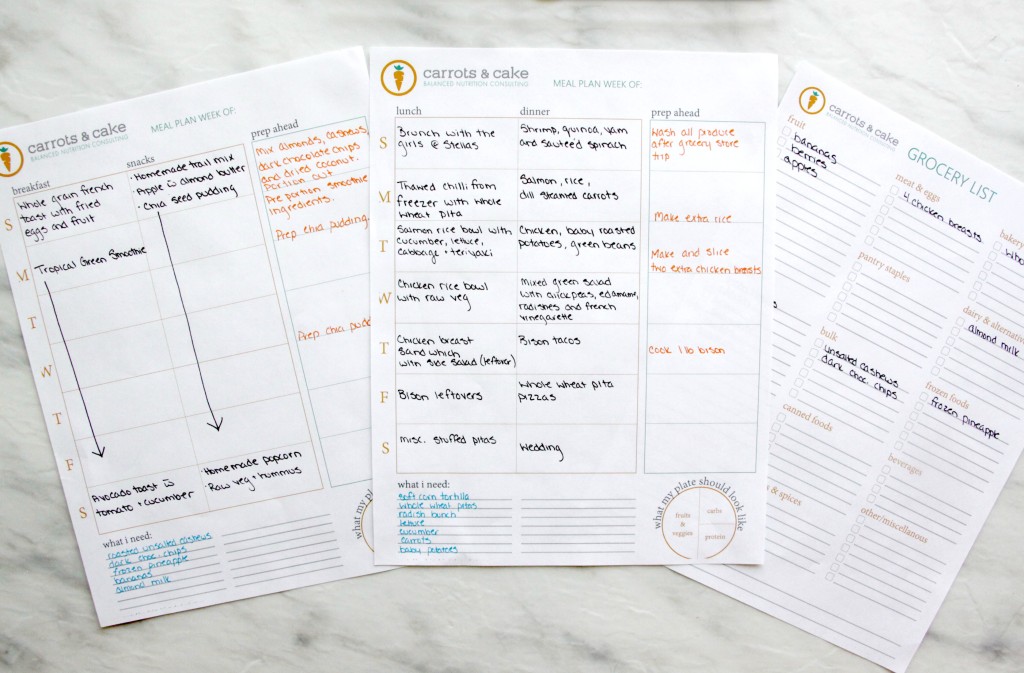 carrots & cake
BALANCED NUTRITION CONSULTING
MEAL PLAN WEEK OF:
breakfast
snacks
prep ahead
S
Whole grain french
toast with fried
eggs and fruit
· Homemade trail mix
· Apple w almond butter
· Chia seed pudding
Mix almonds, cashews,
dark chocolate chips
and dried coconut.
Portion out
Pre portion smoothie
ingredients.
M
Tropical Green Smoothie
Prep chia pudding.
T
W
Prep chia pudd
T
F
S
Avocado toast w
tomato + cucumber
· Homemade popcorn
· Raw veg + hummus
what i need:
roasted unsalted cashews
dark choc. chips
frozen pineapple
bananas
almond milk
what my plate
carrots & cake
BALANCED NUTRITION CONSULTING
MEAL PLAN WEEK OF:
lunch
dinner
prep ahead
S
Brunch with the
girls @ Stellas
Shrimp, quinoa, yam
and sauteé'd spinach
Wash all produce
after grocery store
trip
M
Thawed chilli from
freezer with whole
wheat pita
Salmon, rice,
dill steamed carrots
Make extra rice
T
Salmon rice bowl with
cucumber, lettuce,
cabbage + teriyaki
Chicken, baby roasted
potatoes, green beans
Make and slice
two extra chicken breasts
W
Chicken rice bowl
with raw veg
Mixed green salad
with chickpeas, edamame,
radishes and french
vinegarette
T
Chicken breast
sandwhich
with side salad (leftover)
Bison tacos
Cook 1 lb bison
F
Bison leftovers
Whole wheat pita
pizzas
S
misc. stuffed pitas
Wedding
what i need:
soft corn tortilla
whole wheat pitas
radish bunch
lettuce
cucumber
carrots
baby potatoes
what my plate should look like
fruits
&
veggies
carbs
protein
carrots & cake
BALANCED NUTRITION
GROCERY LIST
fruit
bananas
berries
apples
meat & eggs
4 chicken breasts
bakery
who
pantry staples
dairy & alternativ
almond milk
bulk
unsalted cashews
dark choc. chips
frozen foods
frozen pineapple
canned foods
beverages
s & spices
other/miscellanous